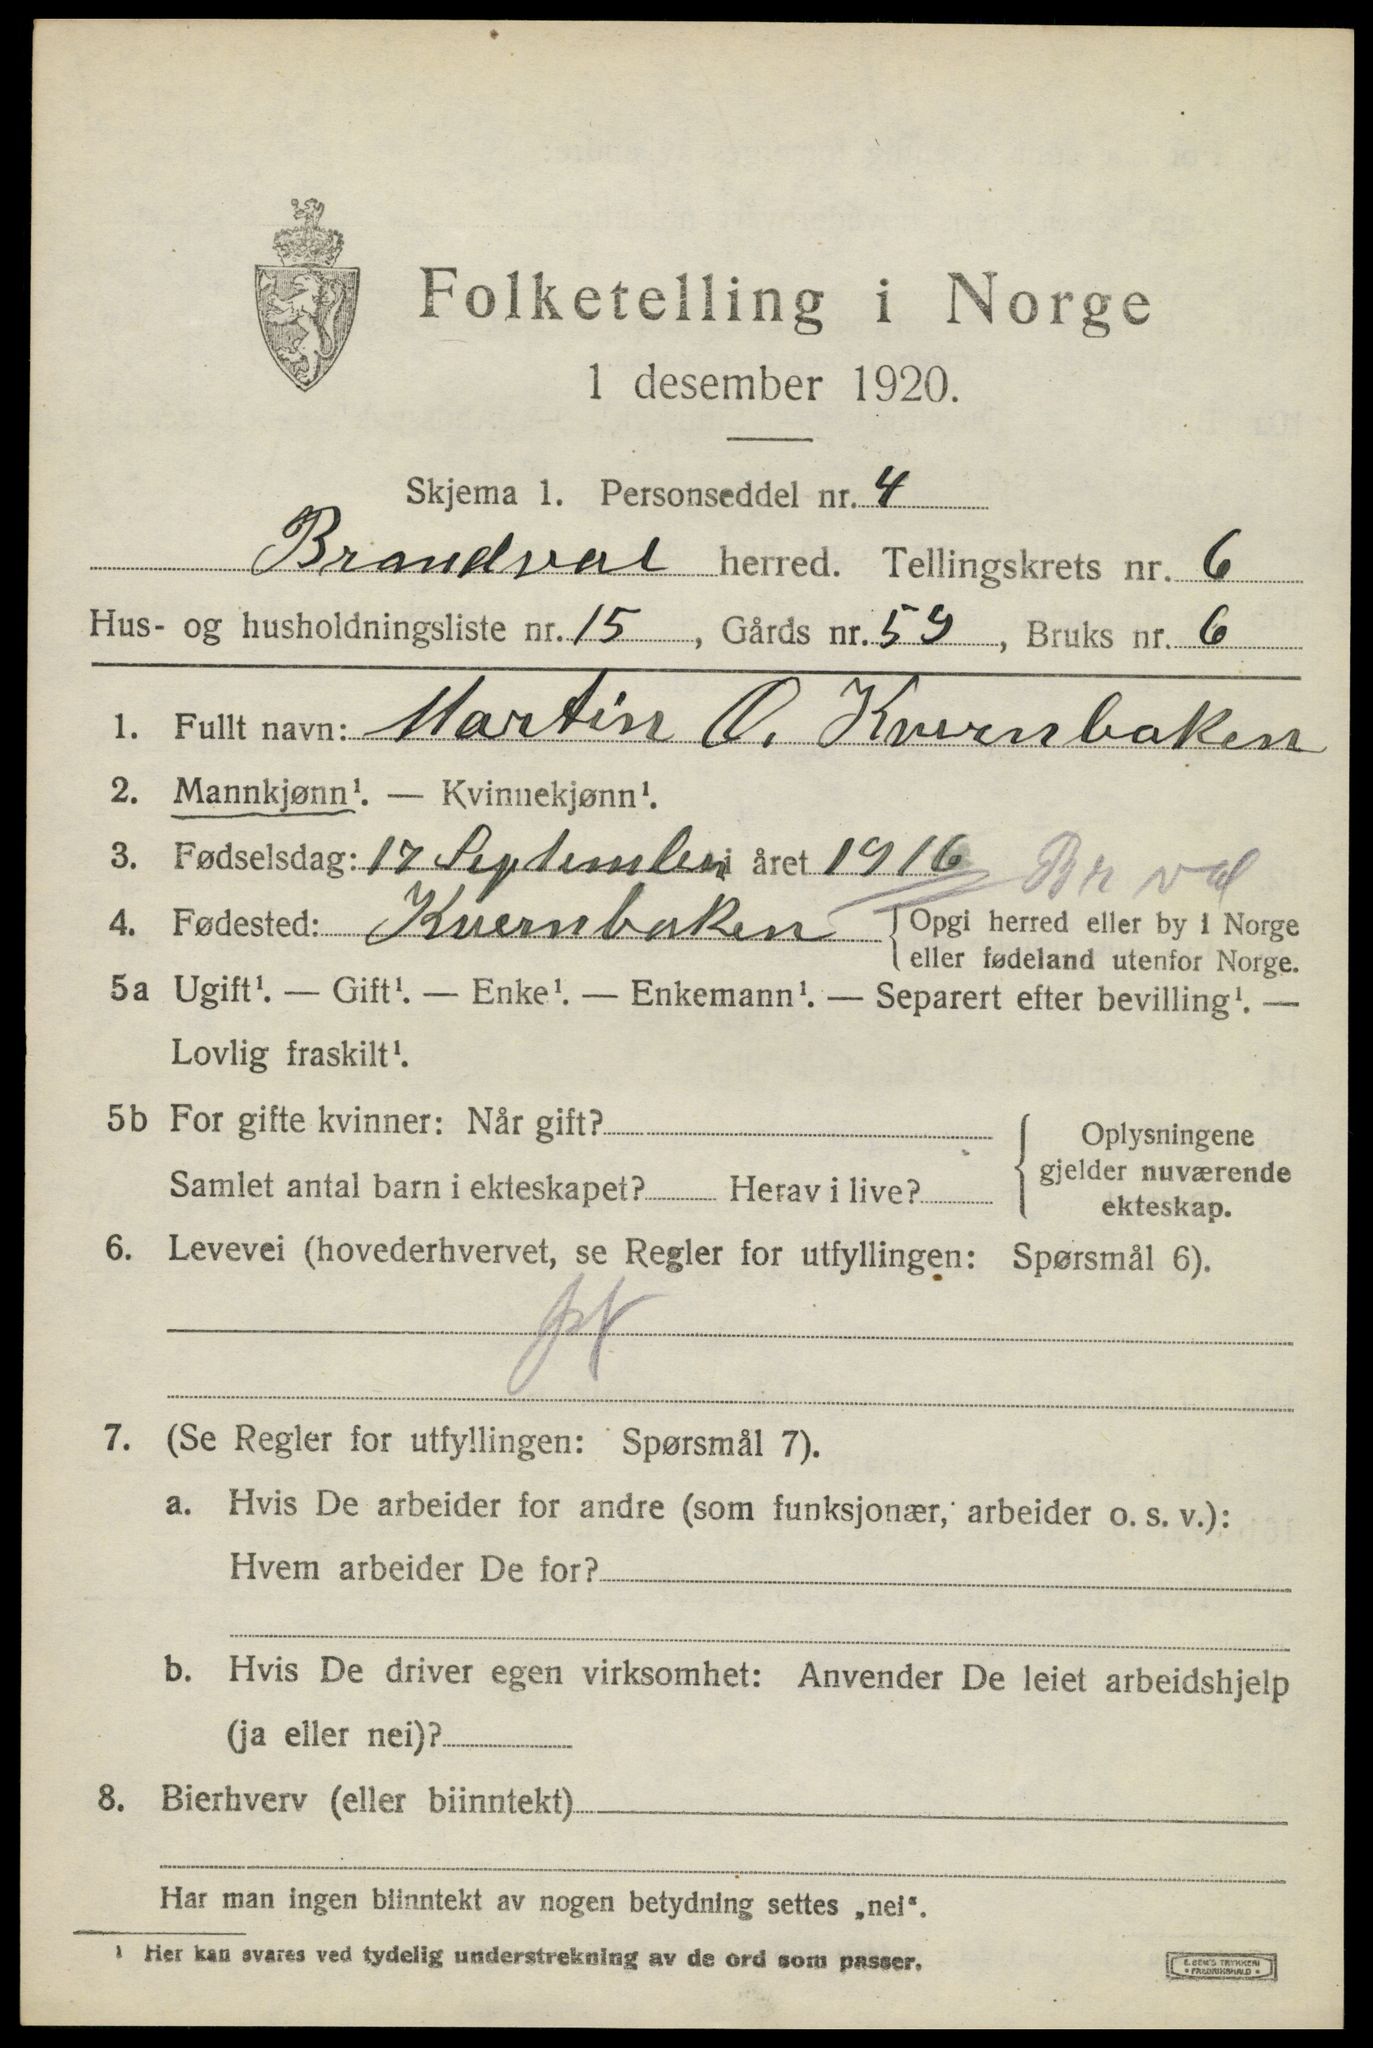 Folketelling i Norge
1 desember 1920.
Skjema 1. Personseddel nr. 4
Brandval herred. Tellingskrets nr. 6
Hus- og husholdningsliste nr. 15, Gårds nr. 59, Bruks nr. 6
1. Fullt navn: Martin O. Kvernbaken
2. Mannkjønn¹. — Kvinnekjønn¹.
3. Fødselsdag: 17 September i året 1916
Br val
4. Fødested: Kvernbaken {Opgi herred eller by i Norge
eller fødeland utenfor Norge.
5a Ugift¹. — Gift¹. — Enke¹. — Enkemann¹. — Separert efter bevilling¹. —
Lovlig fraskilt¹.
5b For gifte kvinner: Når gift?
Samlet antal barn i ekteskapet? Herav i live?
Oplysningene
gjelder nuværende
ekteskap.
6. Levevei (hovederhvervet, se Regler for utfyllingen: Spørsmål 6).
7. (Se Regler for utfyllingen: Spørsmål 7).
a. Hvis De arbeider for andre (som funksjonær, arbeider o. s. v.):
Hvem arbeider De for?
b. Hvis De driver egen virksomhet: Anvender De leiet arbeidshjelp
(ja eller nei)?
8. Bierhverv (eller biinntekt)
Har man ingen biinntekt av nogen betydning settes „nei“.
¹ Her kan svares ved tydelig understrekning av de ord som passer.
E. SEM'S TRYKKERI
• FREDRIKSHALD •